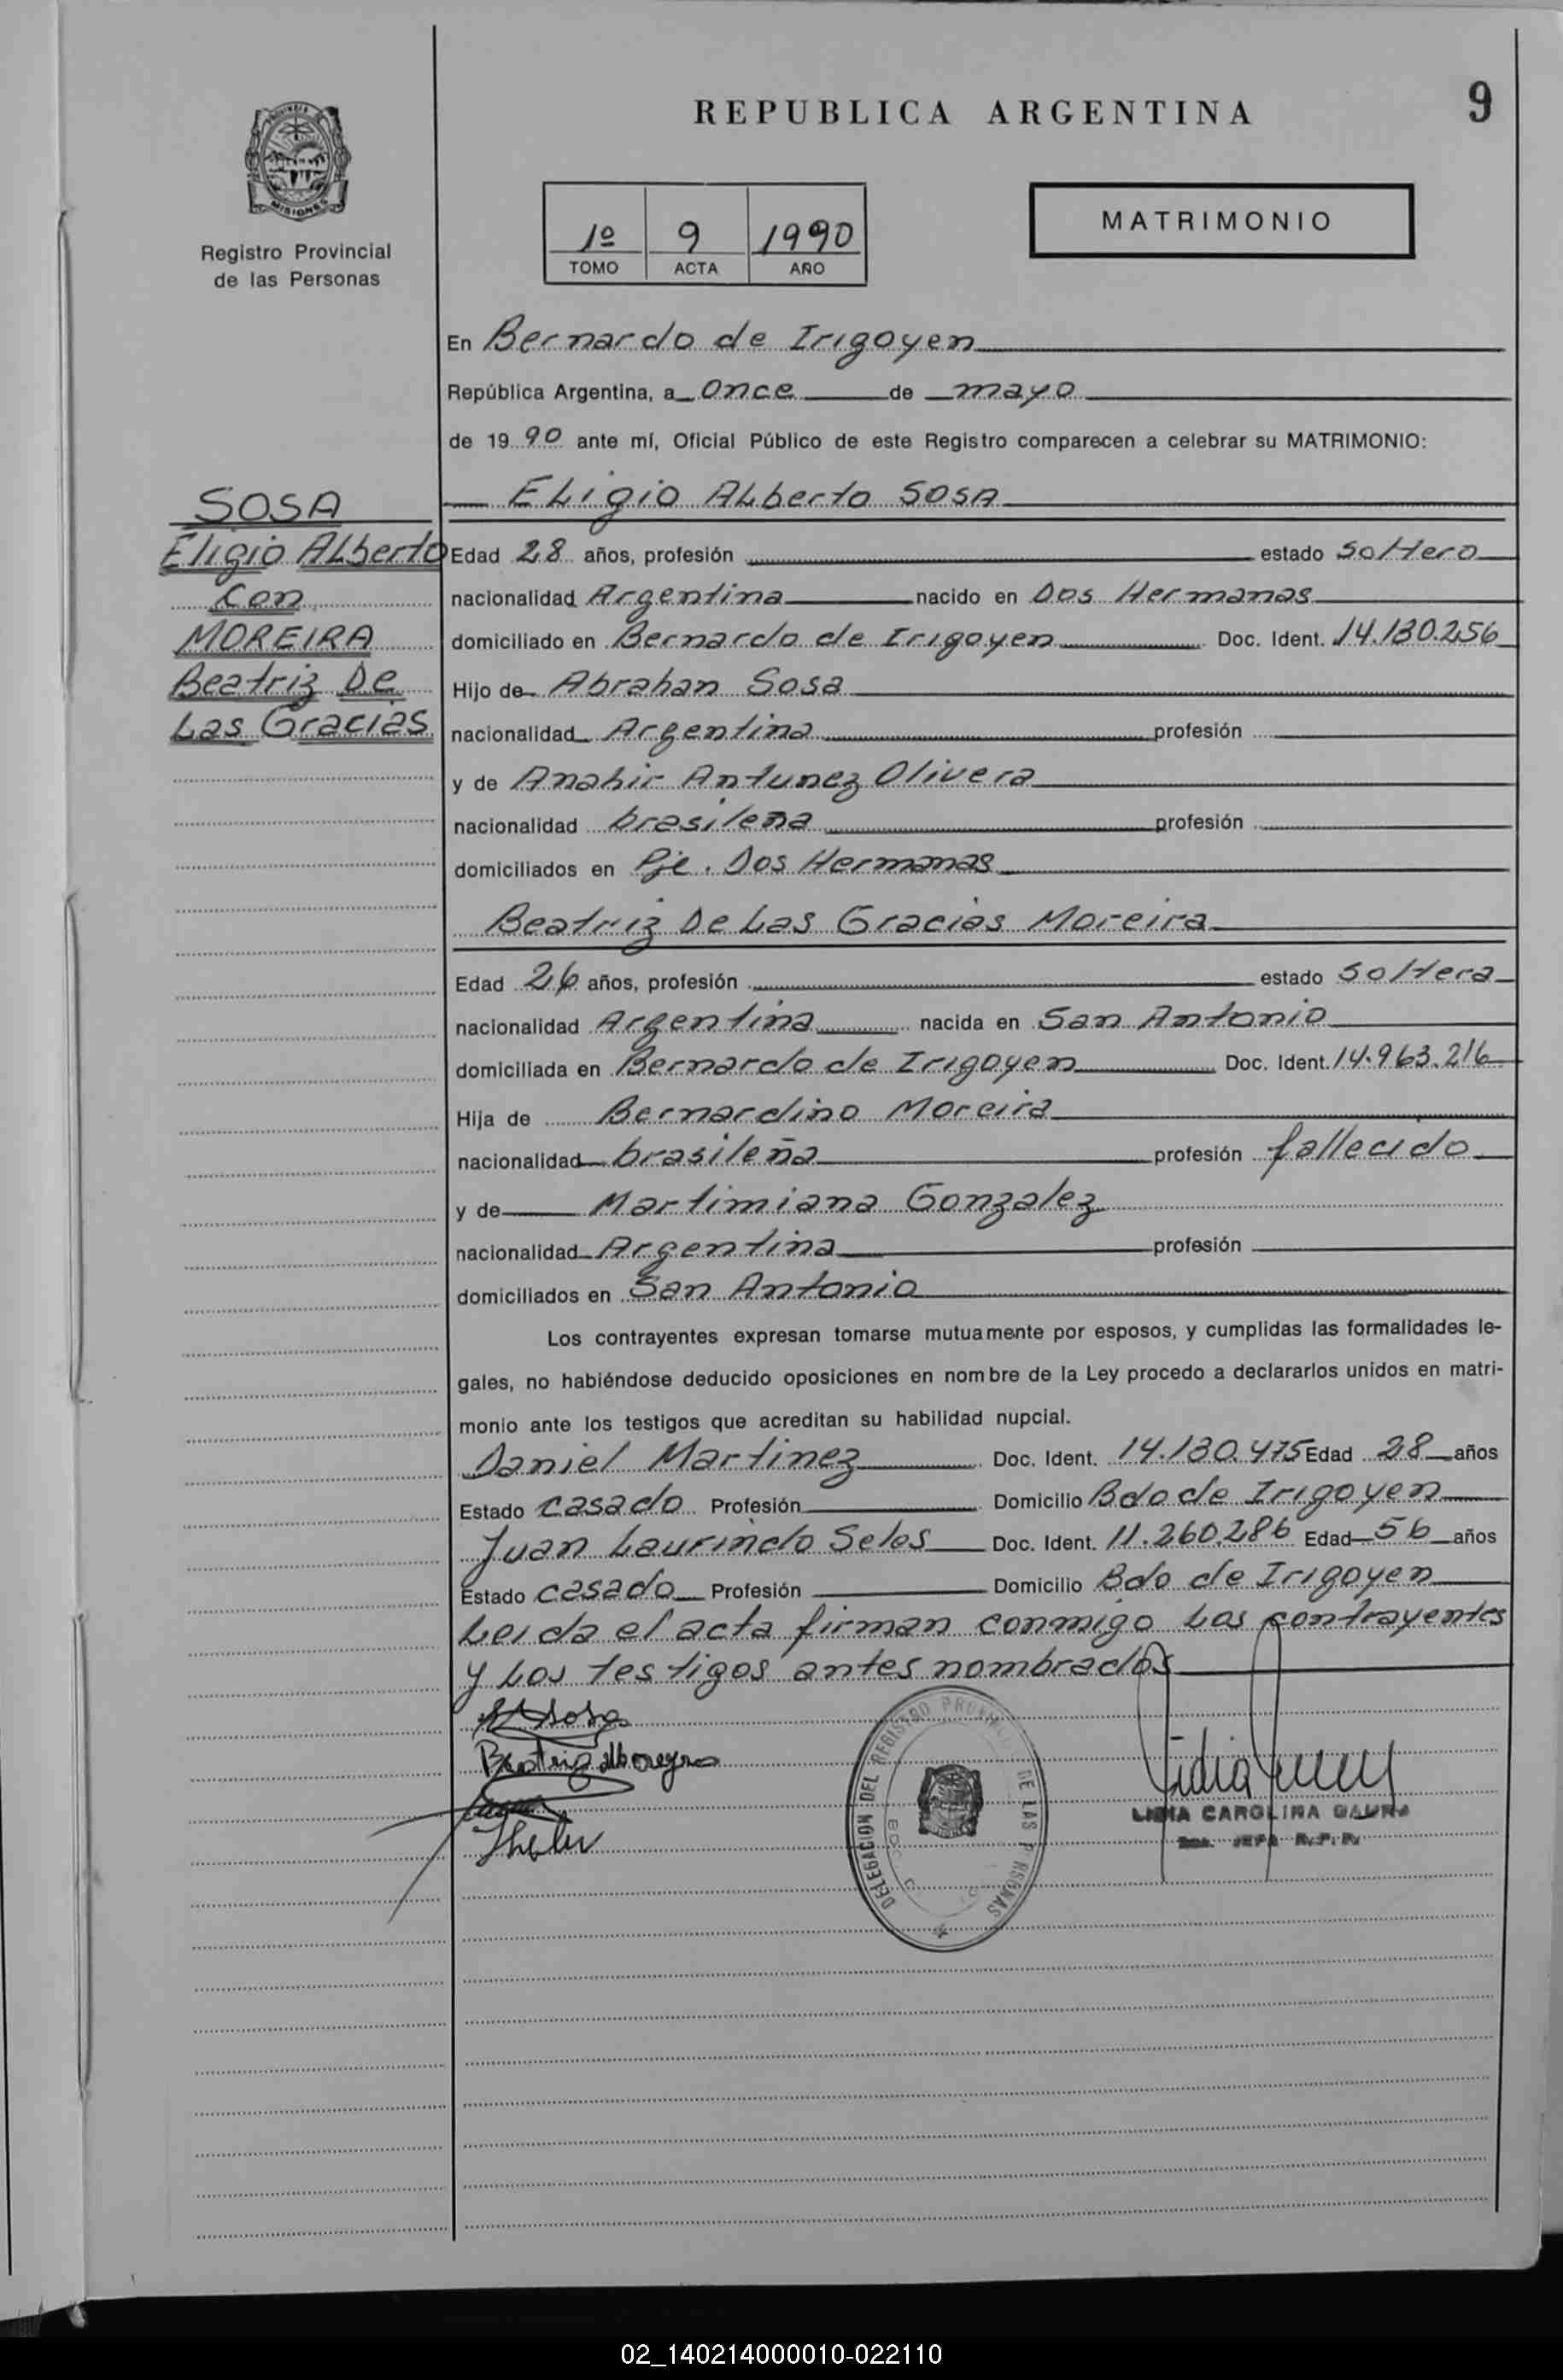 REPUBLICA ARGENTINA
9
MISIONES
Registro Provincial
de las Personas
1º 9 1990
TOMO ACTA AÑO
MATRIMONIO
En Bernardo de Irigoyen
República Argentina, a once de mayo
de 1990 ante mí, Oficial Público de este Registro comparecen a celebrar su MATRIMONIO:
SOSA
Eligio Alberto
con
MOREIRA
Beatriz De
Las Gracias
Eligio Alberto SOSA
Edad 28 años, profesión estado soltero
nacionalidad Argentina nacido en Dos Hermanas
domiciliado en Bernardo de Irigoyen Doc. Ident. 14.130.256
Hijo de Abrahan Sosa
nacionalidad Argentina profesión
y de Anahir Antunez Olivera
nacionalidad brasileña profesión
domiciliados en Pje. Dos Hermanas
Beatriz De Las Gracias Moreira
Edad 26 años, profesión estado soltera
nacionalidad Argentina nacida en San Antonio
domiciliada en Bernardo de Irigoyen Doc. Ident. 14.963.216
Hija de Bernardino Moreira
nacionalidad brasileña profesión fallecido
y de Martimiana Gonzalez
nacionalidad Argentina profesión
domiciliados en San Antonio
Los contrayentes expresan tomarse mutuamente por esposos, y cumplidas las formalidades le-
gales, no habiéndose deducido oposiciones en nombre de la Ley procedo a declararlos unidos en matri-
monio ante los testigos que acreditan su habilidad nupcial.
Daniel Martinez Doc. Ident. 14.130.475 Edad 28 años
Estado casado Profesión Domicilio Bdo de Irigoyen
Juan Laurindo Selos Doc. Ident. 11.260.286 Edad 56 años
Estado casado Profesión Domicilio Bdo de Irigoyen
Leida el acta firman conmigo los contrayentes
y los testigos antes nombrados
Sosa
Beatriz
DELEGACION DEL REGISTRO PROVINCIAL DE LAS PERSONAS
LIDIA CAROLINA
JEFA R.P.P.
02_140214000010-022110